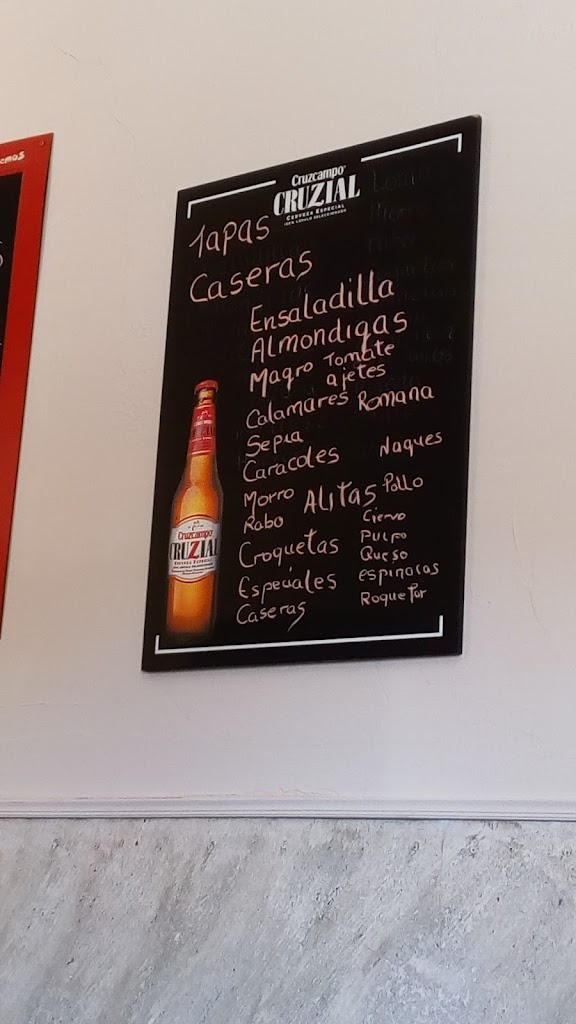 emos
Cruzcampo
CRUZIAL
CERVEZA ESPECIAL
100% LÚPULO SELECCIONADO
Tapas
Caseras
Ensaladilla
Almondigas
Magro Tomate
ajetes
Calamares Romana
Sepia
Caracoles Naques
Morro
Rabo
Alitas Pollo
Croquetas
Especiales
Caseras
Ciervo
Pulpo
Queso
espinacas
Roquefor
Cruzcampo
CRUZIAL
CERVEZA ESPECIAL